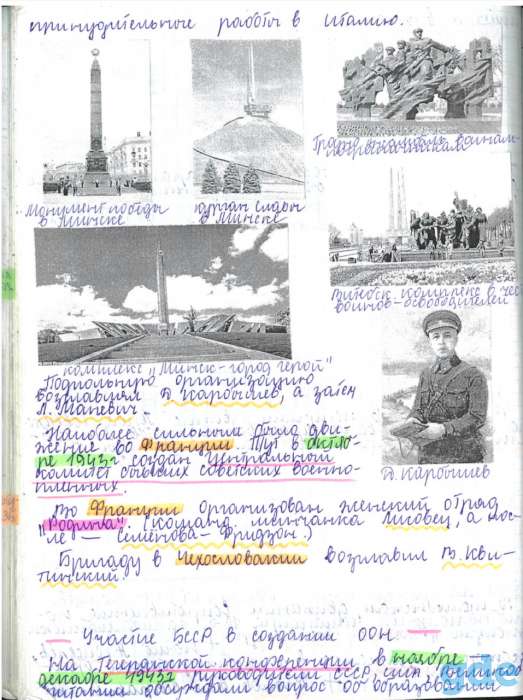 принудительные работы в Италию.
Монумент победы
в Минске
Курган славы
в Минске
Гродно воинам-
пограничникам
Витебск комплекс в чес
воинов-освободителей
комплекс "Минск-город герой"
Подпольную организацию
возглавлял Д. Карбышев, а затем
Л. Маневич.
Наиболее сильным было дви-
жение во Франции. Тут в октяб-
ре 1943г создан Центральный
комитет бывших советских военно-
пленных.
Д. Карбышев
Во Франции организован женский отряд
"Родина". (команд. минчанка Лисовец, а пос-
ле — Семёнова-Фридзон.)
Бригаду в Чехословакии возглавил В. Кви-
тинский.
Участие БССР в создании ООН.
На Тегеранской конференции в ноябре
декабре 1943г руководители СССР, сша, Велико
британии обсуждали вопрос об образовании